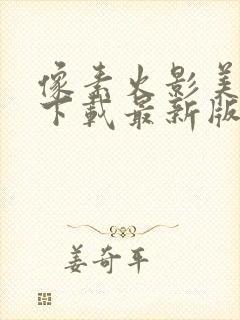 像素火影美
下载最新版
姜奇平